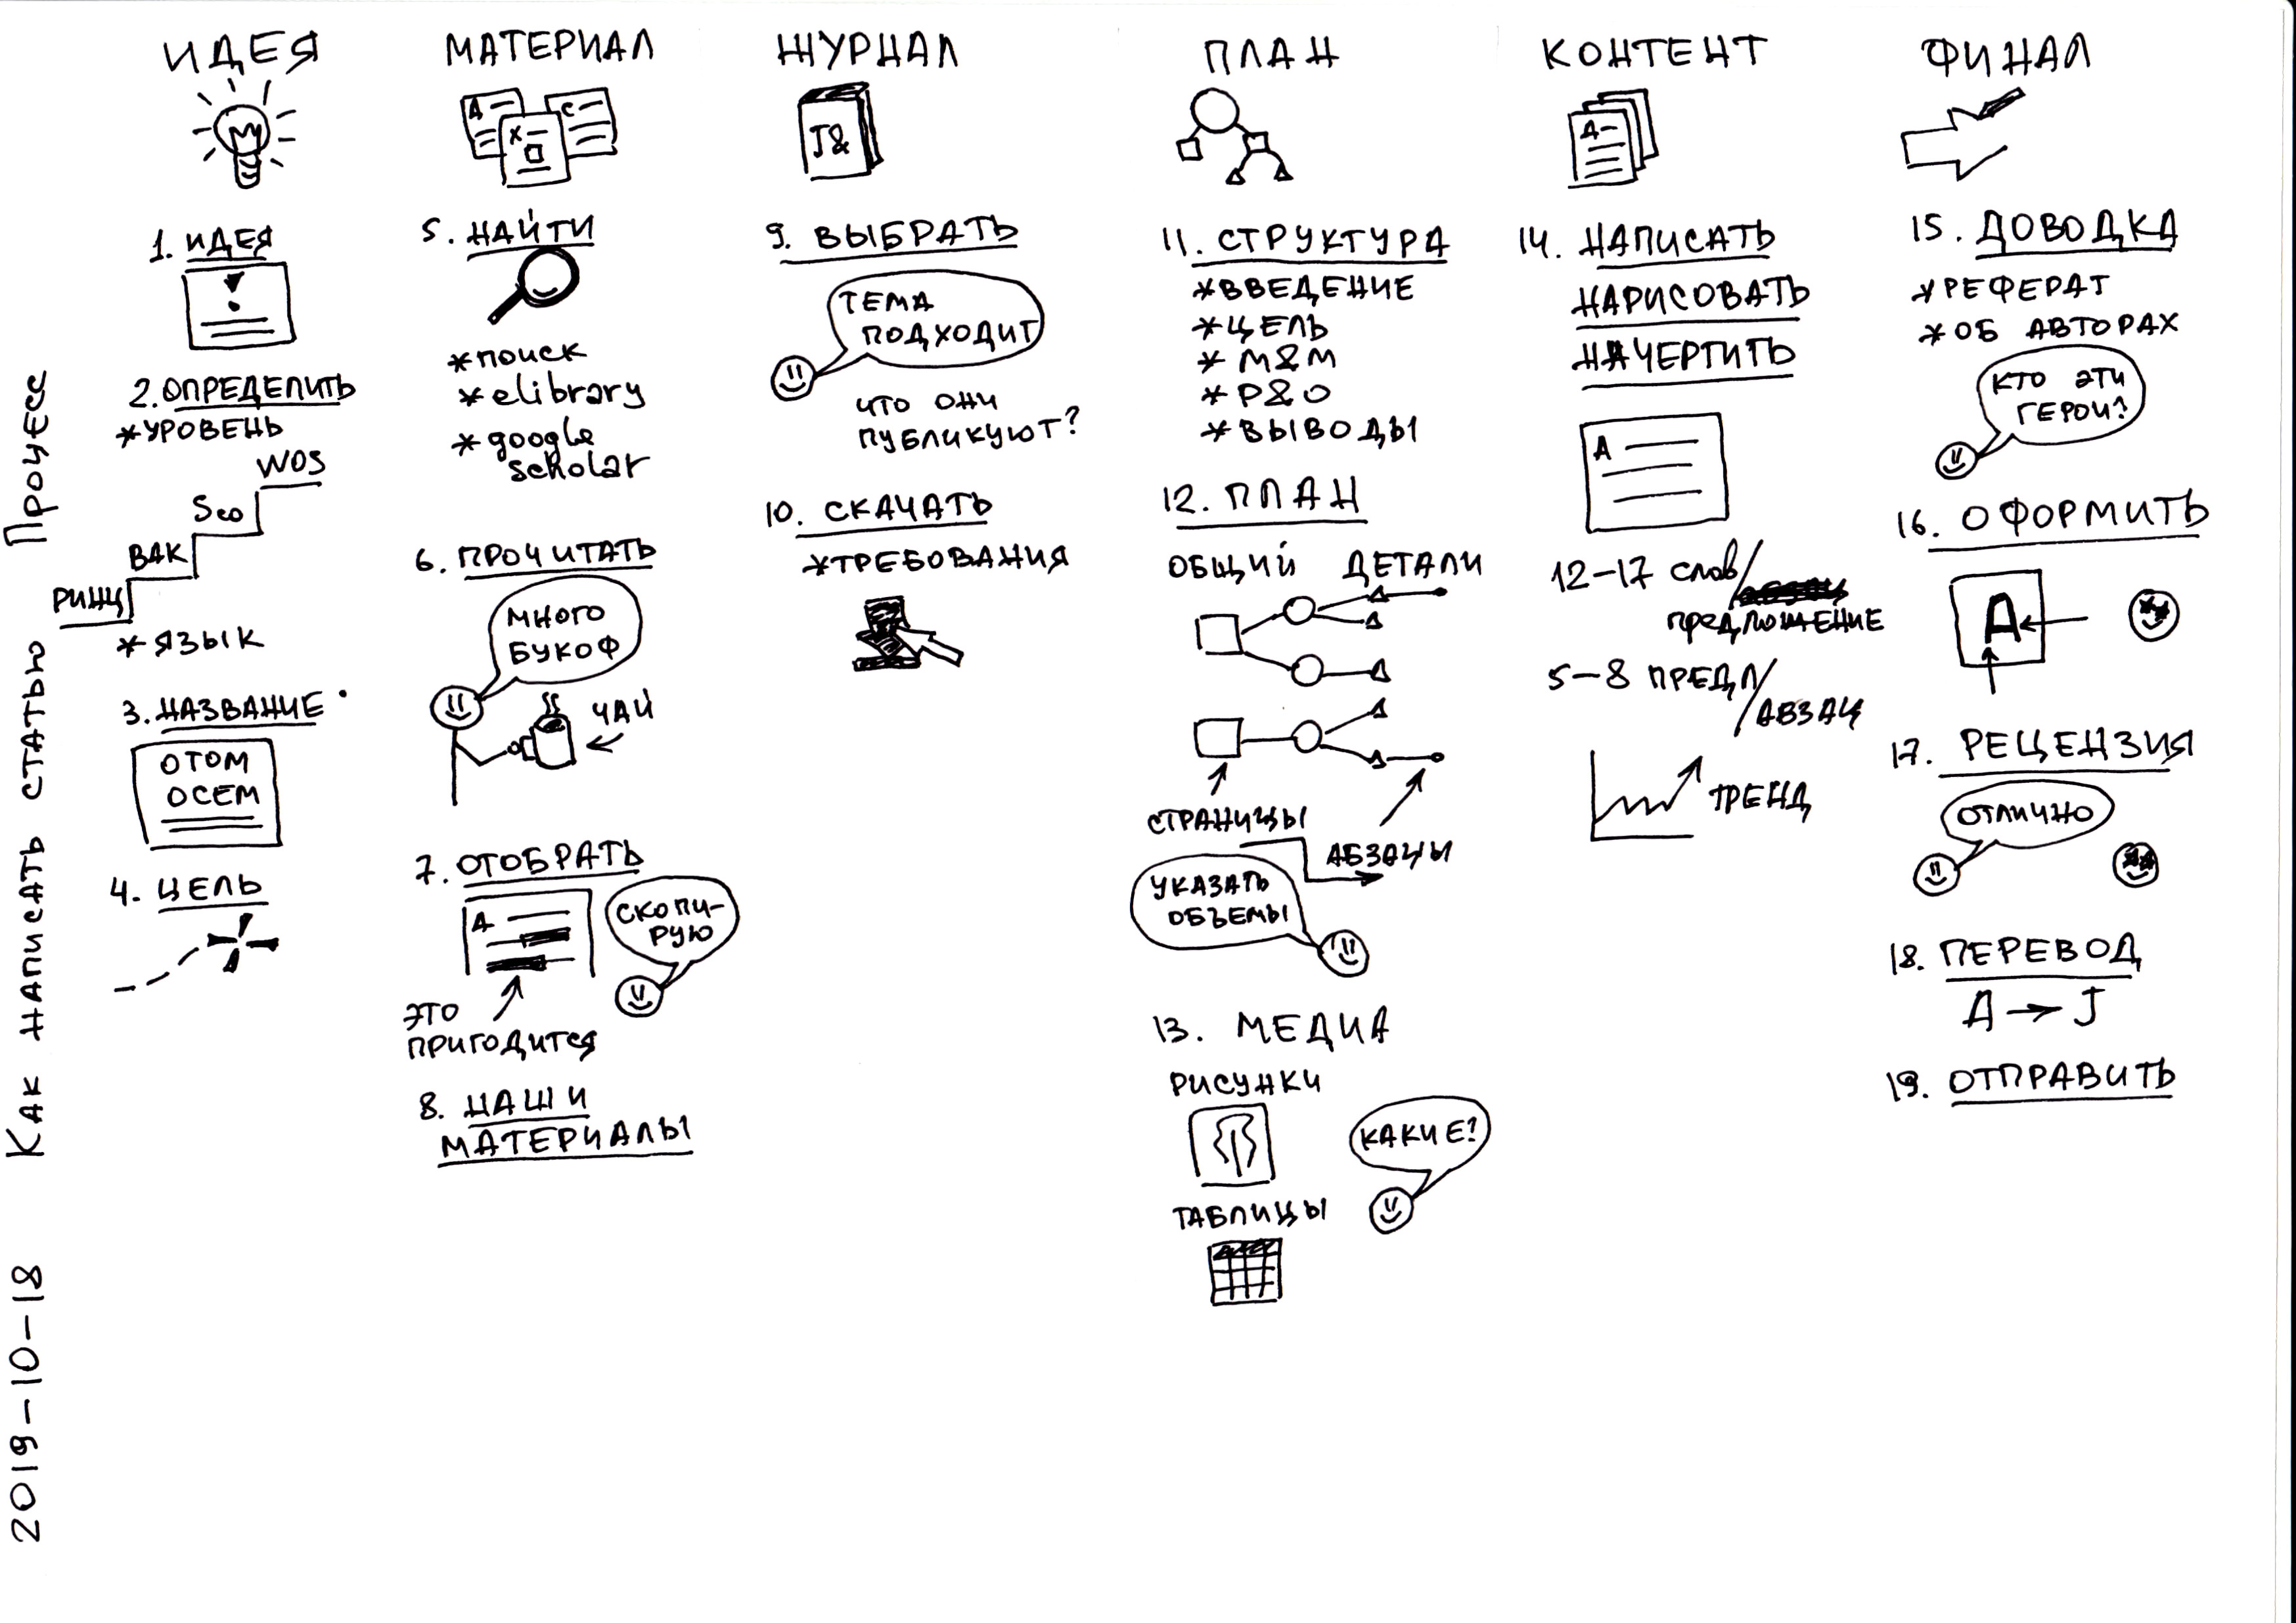 2019-10-18 Как написать статью Процесс
ИДЕЯ
1. ИДЕЯ
!
2. ОПРЕДЕЛИТЬ
*УРОВЕНЬ
WOS
Sco
ВАК
РИНЦ
*ЯЗЫК
3. НАЗВАНИЕ
ОТОМ
ОСЕМ
4. ЦЕЛЬ
МАТЕРИАЛ
A
C
X
5. НАЙТИ
*ПОИСК
*elibrary
*google
scholar
6. ПРОЧИТАТЬ
МНОГО
БУКОФ
ЧАЙ
7. ОТОБРАТЬ
A
СКОПИ-
РУЮ
ЭТО
ПРИГОДИТСЯ
8. НАШИ
МАТЕРИАЛЫ
ЖУРНАЛ
J&
9. ВЫБРАТЬ
ТЕМА
ПОДХОДИТ
ЧТО ОНИ
ПУБЛИКУЮТ?
10. СКАЧАТЬ
*ТРЕБОВАНИЯ
ПЛАН
11. СТРУКТУРА
*ВВЕДЕНИЕ
*ЦЕЛЬ
*М&М
*Р&О
*ВЫВОДЫ
12. ПЛАН
ОБЩИЙ ДЕТАЛИ
СТРАНИЦЫ
АБЗАЦЫ
УКАЗАТЬ
ОБЪЕМЫ
13. МЕДИА
РИСУНКИ
КАКИЕ?
ТАБЛИЦЫ
КОНТЕНТ
A
14. НАПИСАТЬ
НАРИСОВАТЬ
НАЧЕРТИТЬ
A
12-17 слов/
предложение
5-8 ПРЕДЛ/
АБЗАЦ
ТРЕНД
ФИНАЛ
15. ДОВОДКА
*РЕФЕРАТ
*ОБ АВТОРАХ
КТО ЭТИ
ГЕРОИ?
16. ОФОРМИТЬ
A
17. РЕЦЕНЗИЯ
ОТЛИЧНО
18. ПЕРЕВОД
A → J
19. ОТПРАВИТЬ